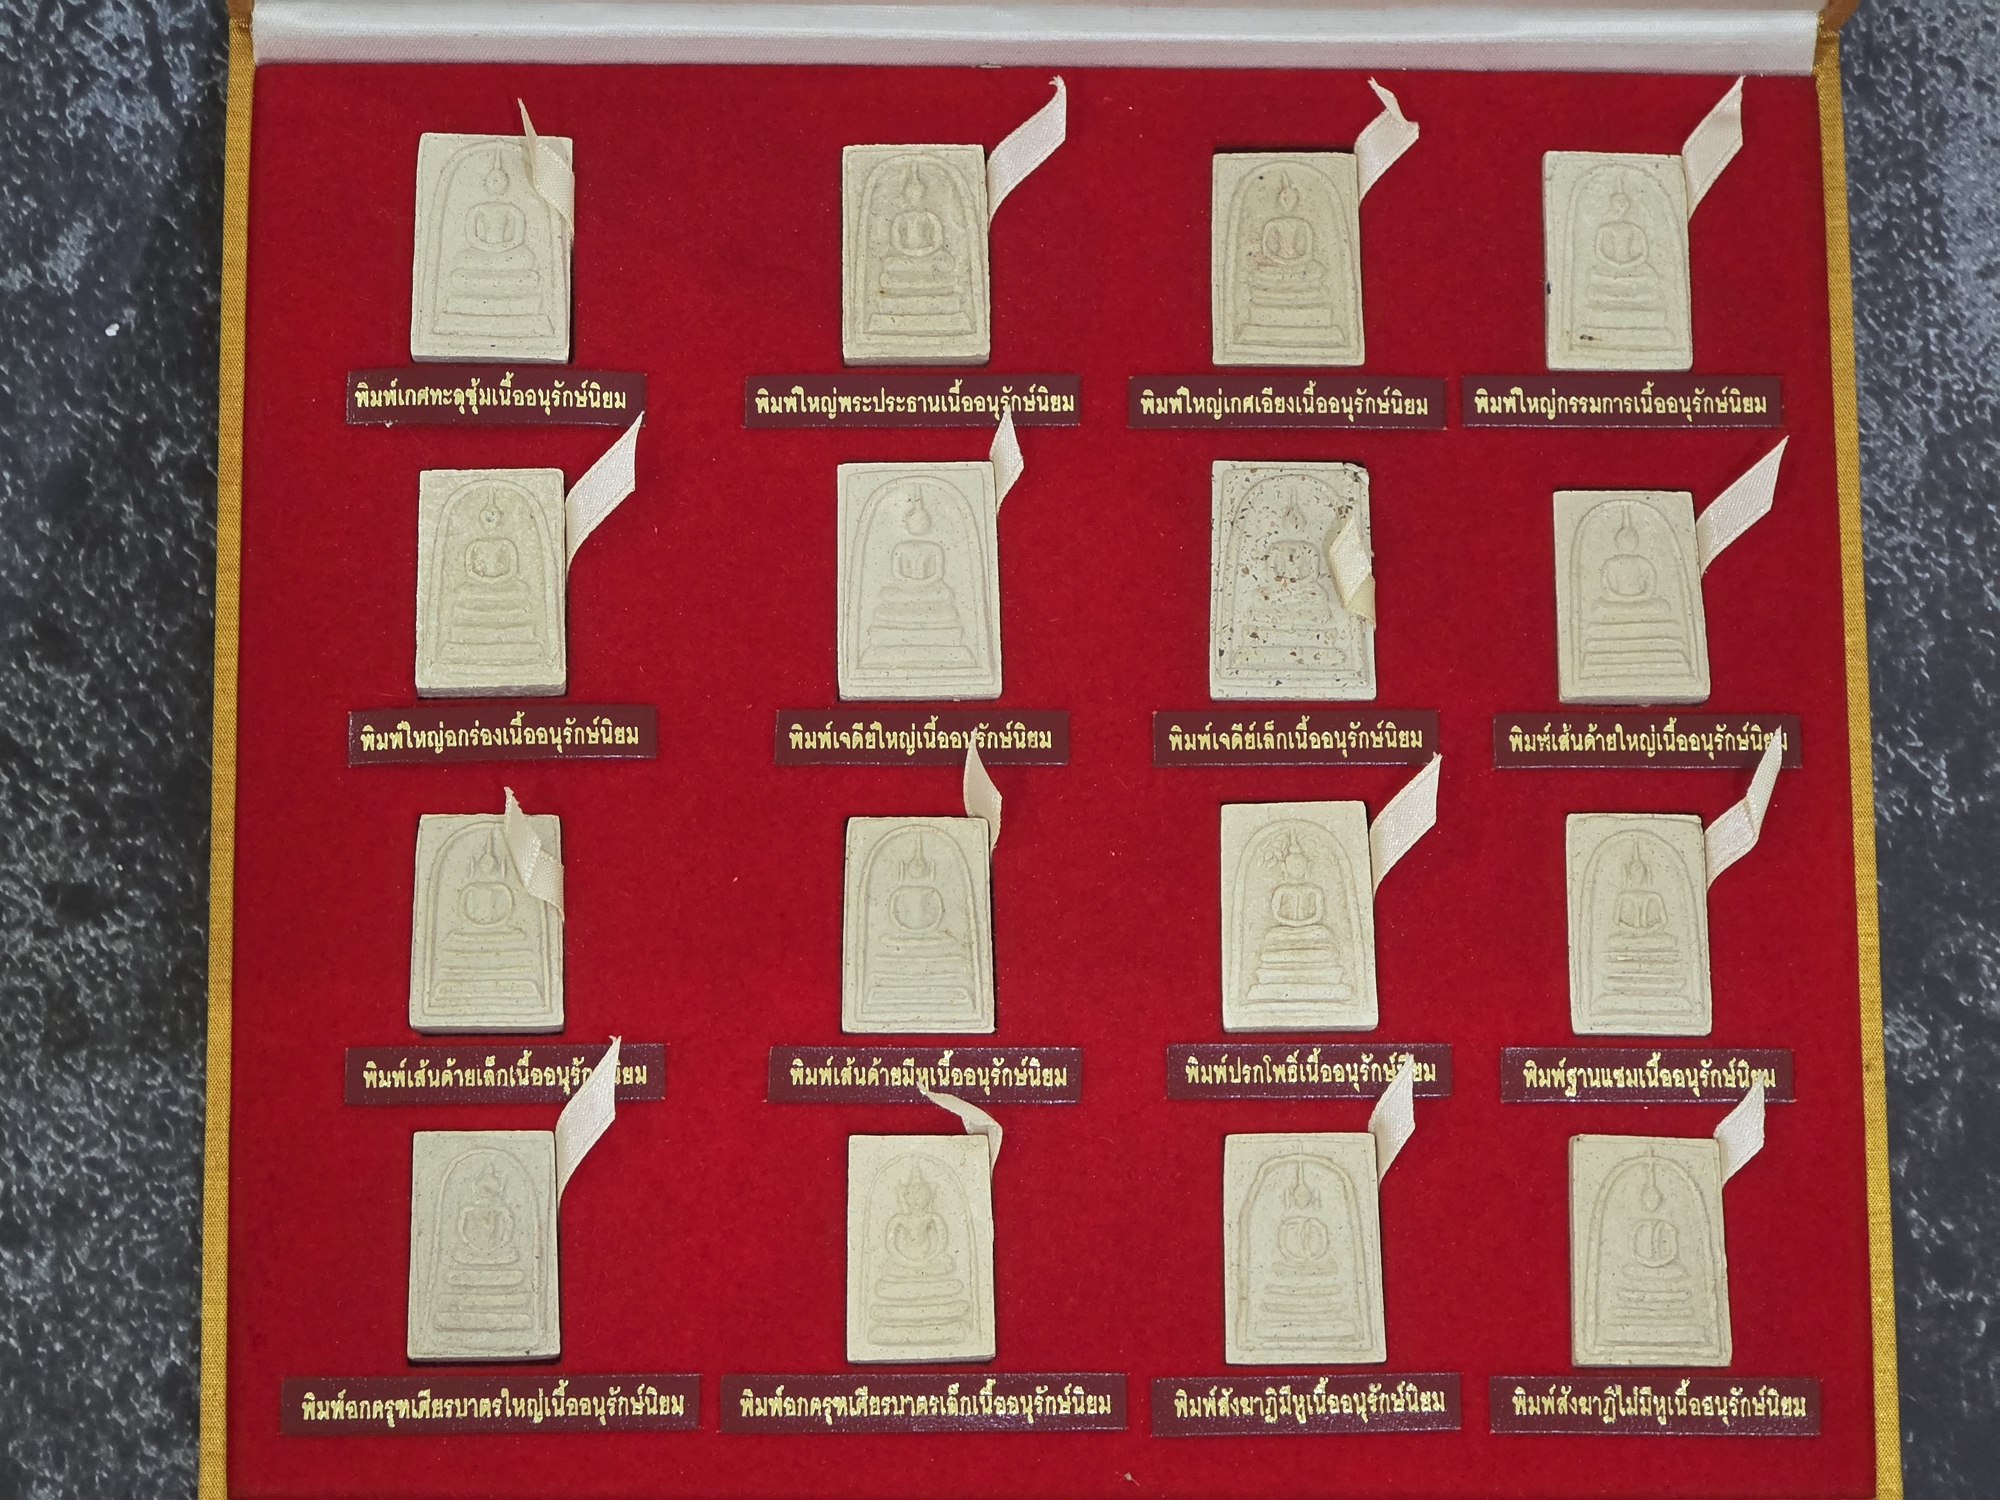 พิมพ์เกศทะลุซุ้มเนื้ออนุรักษ์นิยม
พิมพ์ใหญ่พระประธานเนื้ออนุรักษ์นิยม
พิมพ์ใหญ่เกศเอียงเนื้ออนุรักษ์นิยม
พิมพ์ใหญ่กรรมการเนื้ออนุรักษ์นิยม
พิมพ์ใหญ่อกร่องเนื้ออนุรักษ์นิยม
พิมพ์เจดีย์ใหญ่เนื้ออนุรักษ์นิยม
พิมพ์เจดีย์เล็กเนื้ออนุรักษ์นิยม
พิมพ์เส้นด้ายใหญ่เนื้ออนุรักษ์นิยม
พิมพ์เส้นด้ายเล็กเนื้ออนุรักษ์นิยม
พิมพ์เส้นด้ายมีหูเนื้ออนุรักษ์นิยม
พิมพ์ปรกโพธิ์เนื้ออนุรักษ์นิยม
พิมพ์ฐานแซมเนื้ออนุรักษ์นิยม
พิมพ์อกครุฑเศียรบาตรใหญ่เนื้ออนุรักษ์นิยม
พิมพ์อกครุฑเศียรบาตรเล็กเนื้ออนุรักษ์นิยม
พิมพ์สังฆาฏิมีหูเนื้ออนุรักษ์นิยม
พิมพ์สังฆาฏิไม่มีหูเนื้ออนุรักษ์นิยม